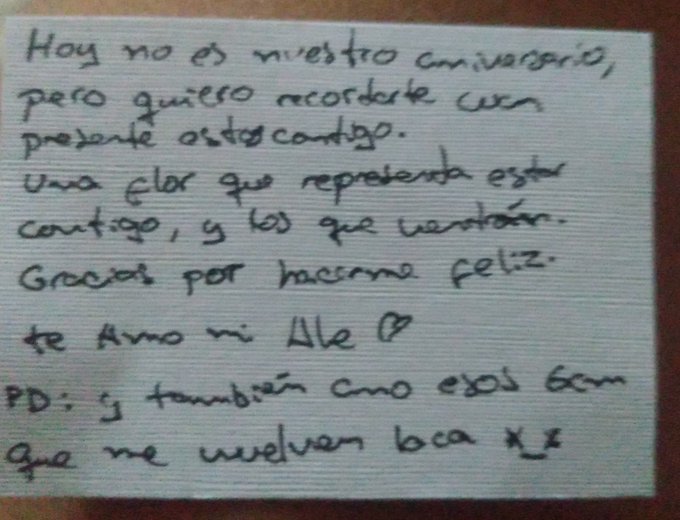 Hoy no es nuestro aniversario,
pero quiero recordarte cuan
presente estas contigo.
una flor que representa estar
contigo, y los que vendrán.
Gracias por hacerme feliz.
te Amo mi Ale ♡
PD: y también amo esos 6cm
que me vuelven loca x_x